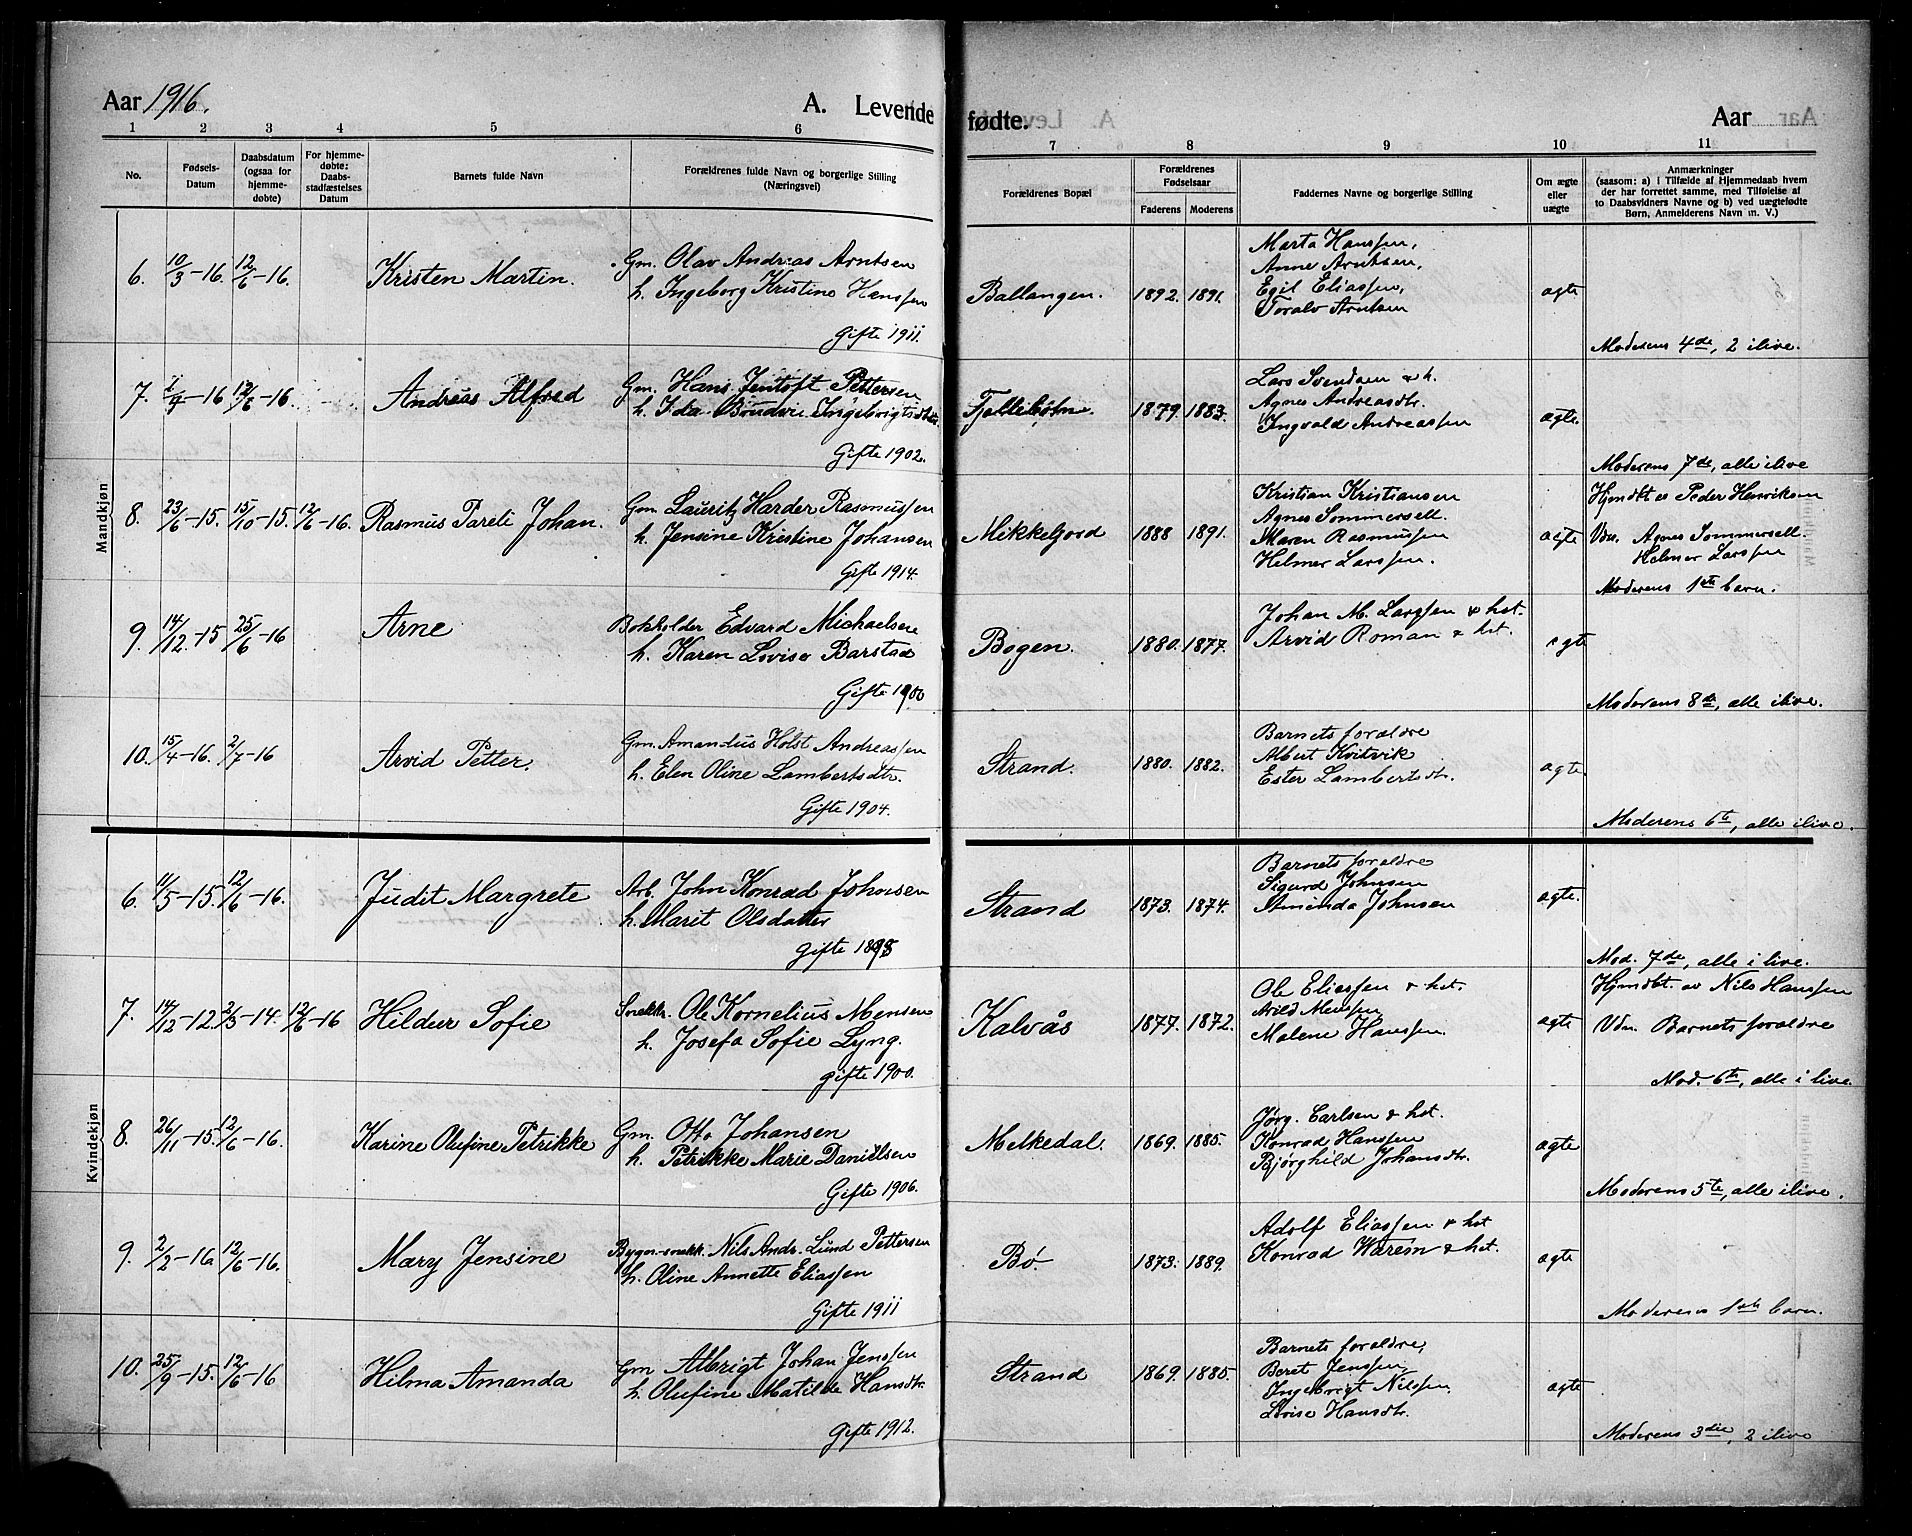 Aar 1916.
A. Levende fødte.
Aar
1 2 3 4 5 6 7 8 9 10 11
No.
Fødsels-Datum
Daabsdatum (ogsaa for hjemme-døbte)
For hjemme-døbte: Daabs-stadfæstelses Datum
Barnets fulde Navn
Forældrenes fulde Navn og borgerlige Stilling (Næringsvei)
Forældrenes Bopæl
Forældrenes Fødselsaar
Faderens Moderens
Faddernes Navne og borgerlige Stilling
Om ægte eller uægte
Anmærkninger
(saasom: a) i Tilfælde af Hjemmedaab hvem
der har forrettet samme, med Tilføielse af
to Daabsvidners Navne og b) ved uægtefødte
Børn, Anmelderens Navn m. V.)
Mandkjøn
6. 10/3-16. 12/6-16. Kristen Martin.
Gm. Olav Andreas Arntsen
h. Ingeborg Kristine Hanssen
Gifte 1911.
Ballangen. 1892. 1891.
Marta Hanssen,
Anne Arntsen,
Egil Eliassen,
Toralv Arntsen
ægte
Moderens 4de, 2 ilive.
7. 13/6-16. Andreas Alfred
Gm. Hans Jentoft Pettersen
h. Ida Ingebrigtsdtr.
Gifte 1902.
1879. 1883.
Lars Svendsen & h.
Agnes Andreasdtr.
Ingvald Andreassen
ægte.
Moderens 7de, alle ilive
8. 23/6-15. 15/10-15. 12/6-16. Rasmus Pareli Johan.
Gm. Lauritz Harder Rasmussen
h. Jensine Kristine Johansen
Gifte 1914.
Mikkelfjord 1888 1891.
Kristian Kristiansen
Agnes Sommersell.
Maren Rasmussen
Helmer Larssen.
ægte
Hjmdbt av Peder Henriksen
Vdn. Agnes Sommersell.
Helmer Larssen
Moderens 1ste barn.
9. 14/12-15 25/6-16 Arne
Bokholder Edvard Michaelsen
h. Karen Lovise Barstad
Gifte 1900
Bogen. 1880. 1877.
Johan M. Larssen & hst.
Arvid Roman & hst.
ægte
Moderens 8de, alle ilive.
10. 15/4-16. 2/7-16 Arvid Petter.
Gm. Amandus Holst Andreassen
h. Elen Oline Lambertsdtr.
Gifte 1904.
Strand. 1880. 1882.
Barnets forældre
Albert Kvitvik
Ester Lambertsdtr.
ægte
Moderens 6te, alle ilive.
Kvindekjøn
6. 11/5-15. 12/6-16. Judit Margrete
Arb. John Konrad Johnsen
h. Marit Olsdatter
Gifte 1898
Strand 1873. 1874.
Barnets forældre
Sigurd Johnsen
Aminda Johnsen
ægte.
Mod. 7de, alle i live.
7. 14/12-12. 2/3-14. 12/6-16 Hildur Sofie
Snekk. Ole Kornelius Mensen
h. Josefa Sofie Lyng.
gifte 1900.
Kalvås 1877. 1872.
Ole Eliassen & hst.
Arild Menssen
Malene Hanssen.
ægte
Hjmdbt. av Nils Hanssen
Vdn. Barnets forældre
Mod. 6te, alle i live.
8. 26/11-15. 12/6-16. Karine Olufine Petrikke
Gm. Otto Johansen
h. Petrikke Marie Danielsen
Gifte 1906.
Melkedal. 1869. 1885.
Jørg. Carlsen & hst.
Konrad Hanssen
Bjørghild Johansdtr.
ægte
Moderens 5te, alle ilive.
9. 2/2-16 12/6-16. Mary Jensine
Bygn.-snekk. Nils Andr. Lund Pettersen
h. Oline Annette Eliassen
Gifte 1911
Bø. 1873. 1889.
Adolf Eliassen & hst
Konrad & hst.
ægte
Moderens 1ste barn.
10. 25/9-15. 12/6-16 Hilma Amanda
Gm Albrigt Johan Jenssen
h. Olufine Matilde Hansdtr.
Gifte 1912.
Strand 1869. 1885.
Barnets forældre,
Beret Jenssen,
Ingebrigt Nilssen.
Lovise Hansdtr.
ægte
Moderens 3die, 2 ilive